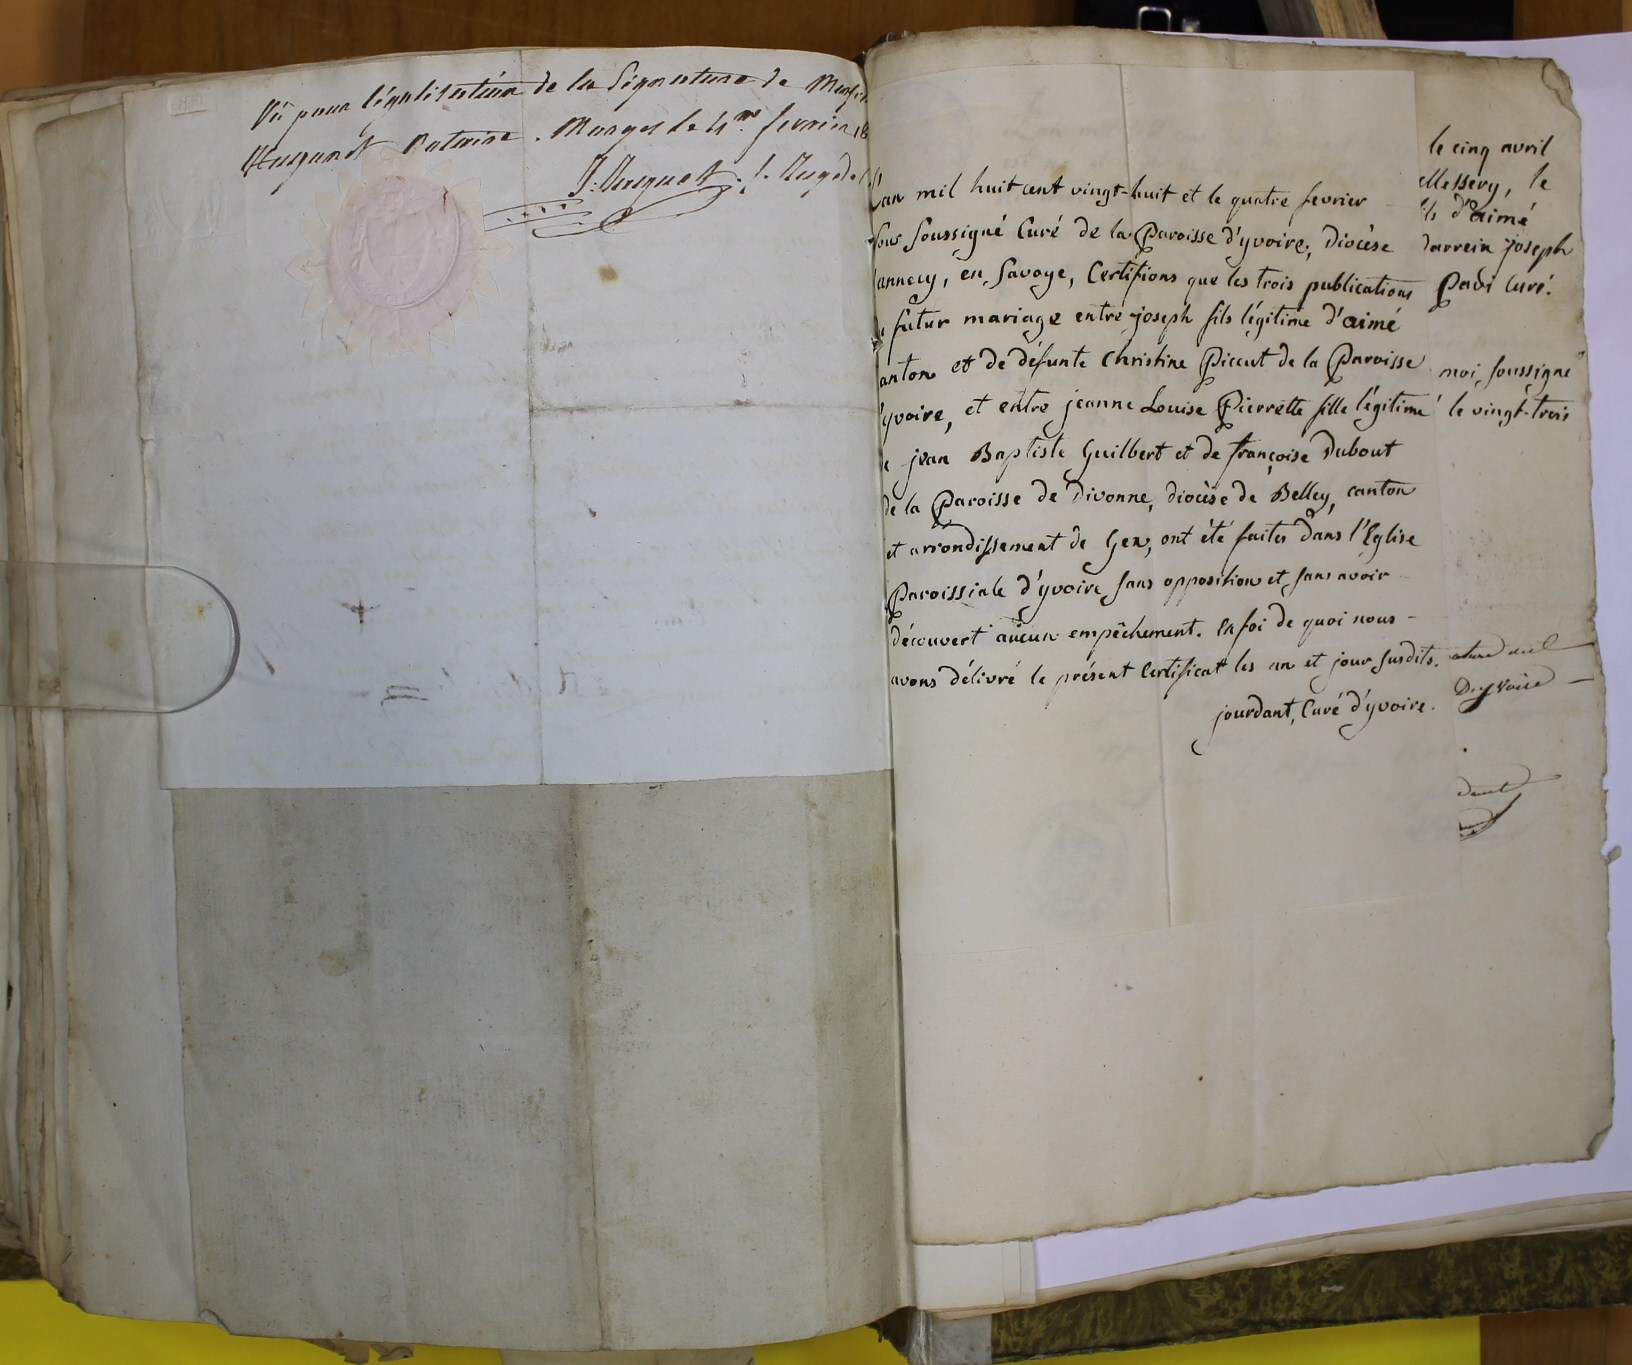 Vû pour légalisation de la Signature de
Notaire. Morges le 4me fevrier 18
L'an mil huit cent vingt-huit et le quatre fevrier
Nous Soussigné Curé de la Paroisse d'yvoire, Diocèse
annecy, en Savoye, Certifions que les trois publications
futur mariage entre joseph fils légitime d'aimé
anton et de défunte Christine Piccut de la Paroisse
d'yvoire, et entre jeanne Louise Pierrette fille légitime
jean Baptiste Guilbert et de françoise Dubout
de la Paroisse de Divonne, diocèse de Belley, canton
et arrondissement de Gex, ont été faites dans l'Eglise
Paroissiale d'yvoire, Sans opposition et Sans avoir
découvert aucun empêchement. En foi de quoi nous
avons délivré le présent Certificat les an et jour Susdits.
jourdant, Curé d'yvoire.
le cinq avril
Messery, le
ls d'aimé
darrein joseph
Curé.
moi, Soussigné
le vingt-trois
D'yvoire